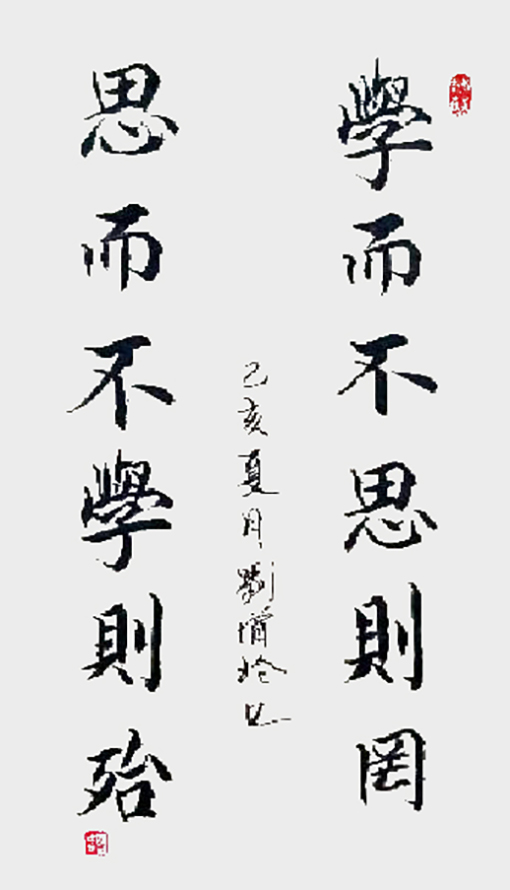 學而不思則罔
思而不學則殆
己亥夏月劉